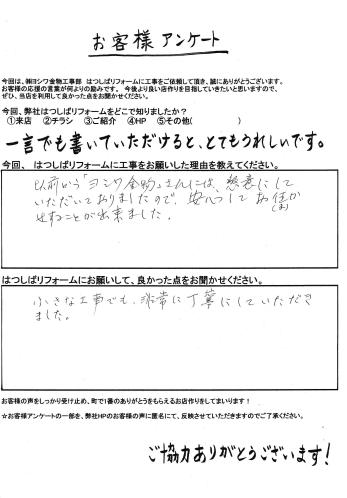 お客様 アンケート
今回は、㈱ヨシワ金物工事部 はつしばリフォームに工事をご依頼して頂き、誠にありがとうございます。
お客様の応援の言葉が何よりの励みです。 今後より良い店作りを目指していきたいと思いますので、
ぜひ、当店を利用して良かった点をお聞かせください。
今回、弊社はつしばリフォームをどこで知りましたか?
①来店 ②チラシ ③ご紹介 ④HP ⑤その他( )
一言でも書いていただけると、とてもうれしいです。
今回、 はつしばリフォームに工事をお願いした理由を教えてください。
以前から「ヨシワ金物」さんには、懇意にして
いただいておりましたので、安心してお任か
せすることが出来ました。
(ま)
はつしばリフォームにお願いして、良かった点をお聞かせください。
小さな工事でも、非常に丁寧にしていただき
ました。
お客様の声をしっかり受け止め、町で1番のありがとうをもらえるお店作りをしてまいります!
☆お客様アンケートの一部を、弊社HPのお客様の声に匿名にて、反映させていただきますのでご了承ください。
ご協力ありがとうございます!